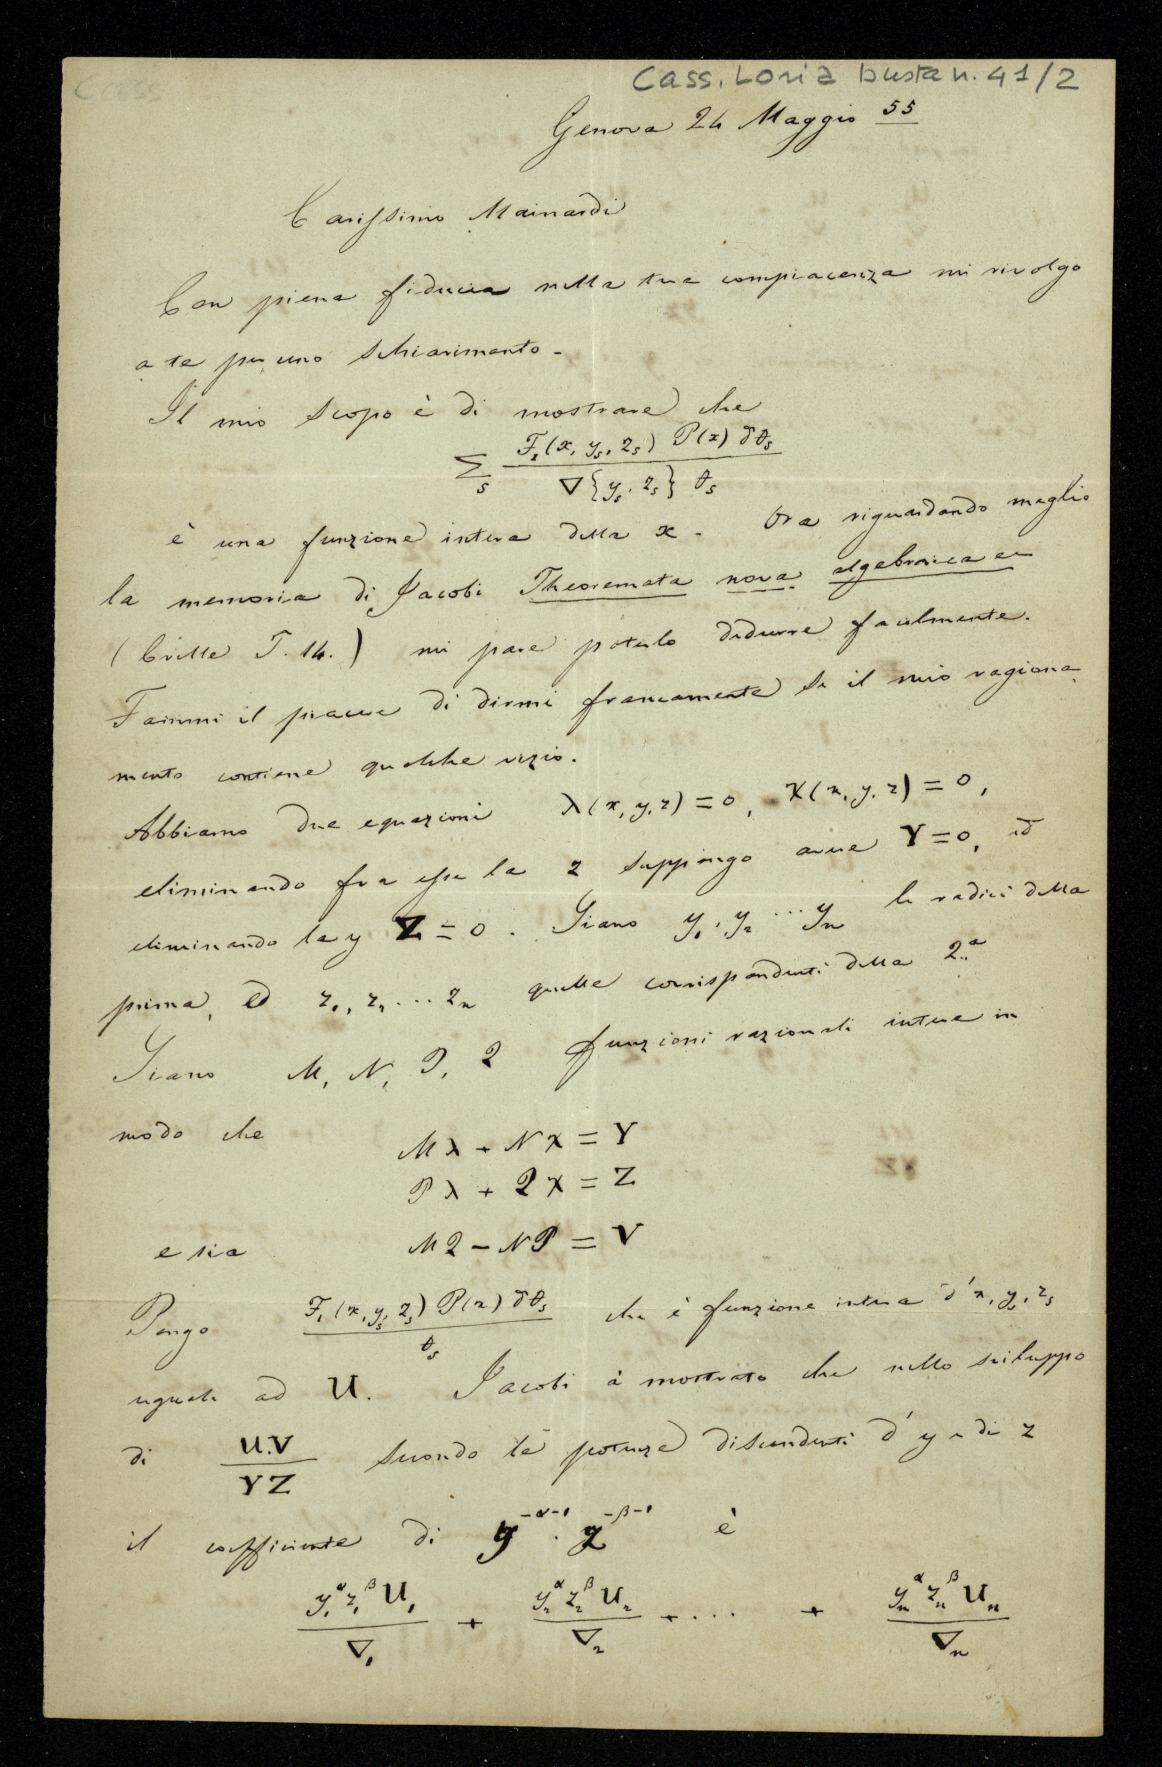 Cass. Loria busta n. 41/2
Genova 24 Maggio 55
Carissimo Mainardi
Con piena fiducia nella tua compiacenza mi rivolgo
a te per uno schiarimento.
Il mio scopo è di mostrare che
∑_s F_1(x, y_s, z_s) P(x) δθ_s / ∇{y_s, z_s} θ_s
è una funzione intera della x. Ora riguardando meglio
la memoria di Jacobi Theoremata nova algebraica
(Crelle T. 14.) mi pare poterlo dedurre facilmente.
Fammi il piacere di dirmi francamente se il mio ragiona-
mento contiene qualche vizio.
Abbiamo due equazioni λ(x, y, z) = 0, χ(x, y, z) = 0,
eliminando fra esse la z suppongo avere Y = 0, ed
eliminando la y Z = 0. Siano y_1, y_2 ... y_n le radici della
prima, ed z_1, z_2 ... z_n quelle corrispondenti della 2.a
Siano M, N, P, Q funzioni razionali intere in
modo che
Mλ + Nχ = Y
Pλ + Qχ = Z
e sia MQ − NP = V
Pongo F_1(x, y_s, z_s) P(x) δθ_s / θ_s che è funzione intera d'x, y_s, z_s
uguale ad U. Jacobi à mostrato che nello sviluppo
di U.V / YZ secondo le potenze discendenti d'y e di z
il coefficiente di y^{-α-1} . z^{-β-1} è
y_1^α z_1^β U_1 / ∇_1 + y_2^α z_2^β U_2 / ∇_2 + .... + y_n^α z_n^β U_n / ∇_n